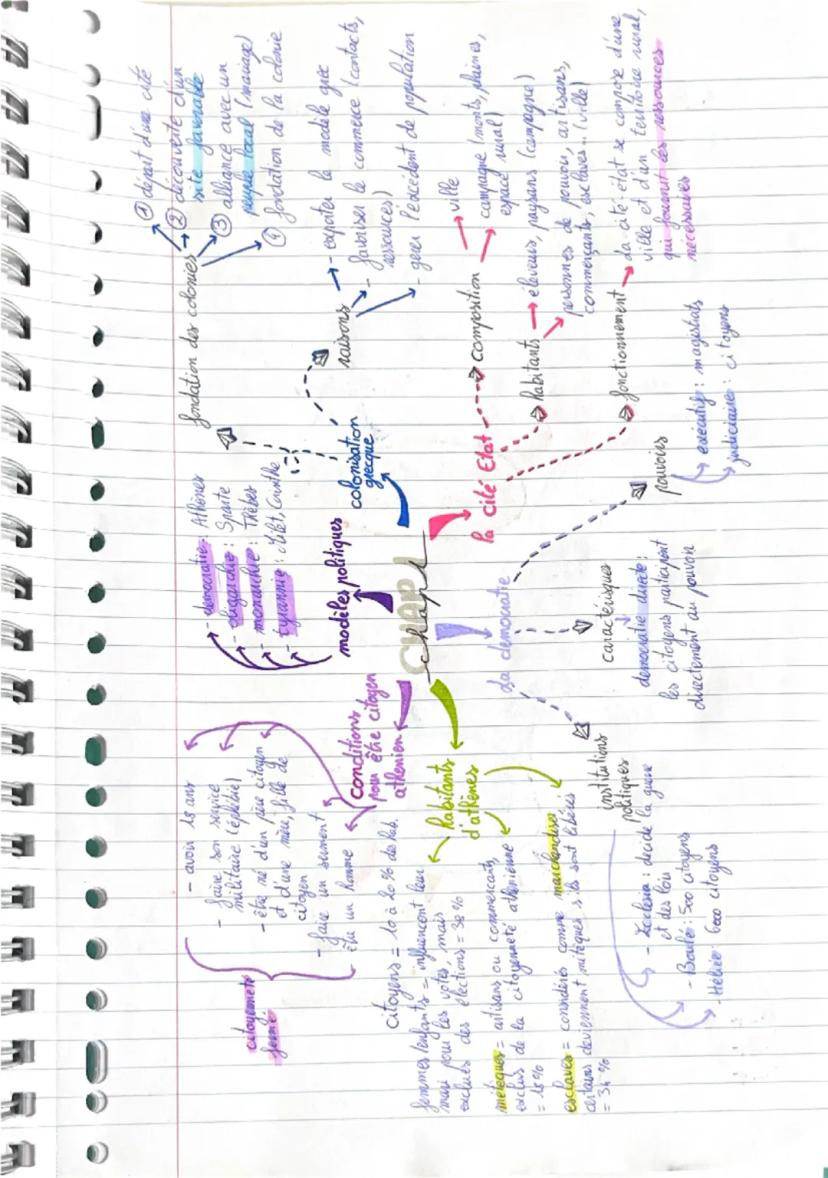 CHAP 1
chap 1
conditions
pour être citoyen
athénien
- avoir 18 ans
- faire son service
militaire (éphébie)
- être né d'un père citoyen
et d'une mère, fille de
citoyen
- faire un serment
être un homme
citoyenneté
fermée
modèles politiques
- démocratie : Athènes
- oligarchie : Sparte
- monarchie : Thèbes
- tyrannie : Milet, Corinthe
colonisation
grecque
fondation des colonies
① départ d'une cité
② découverte d'un
site favorable
③ alliance avec un
peuple local (mariage)
④ fondation de la colonie
raisons
- exporter le modèle grec
- favoriser le commerce (contacts,
ressources)
- gérer l'excédent de population
la cité Etat
composition
ville
campagne (monts, plaines,
espace rural)
habitants
éleveurs, paysans (campagne)
personnes de pouvoir, artisans,
commerçants, esclaves... (ville)
fonctionnement
La cité-état se compose d'une
ville et d'un territoire rural,
qui fournit les ressources
nécessaires
La démocratie
pouvoirs
exécutif : magistrats
judiciaire : citoyens
caractérisques
démocratie directe :
les citoyens participent
directement au pouvoir
institutions
politiques
- Ecclesia : décide la guerre
et des lois
- Boulé : 500 citoyens
- Héliée : 6000 citoyens
habitants
d'athènes
citoyens = 10 à 20 % de hab.
femmes/enfants = influencent leur
mari pour les votes, mais
exclues des élections = 38 %
métèques = artisans ou commerçants,
exclus de la citoyenneté athénienne
= 18 %
esclaves = considérés comme marchandises
certains deviennent métèques s'ils sont libérés
= 34 %